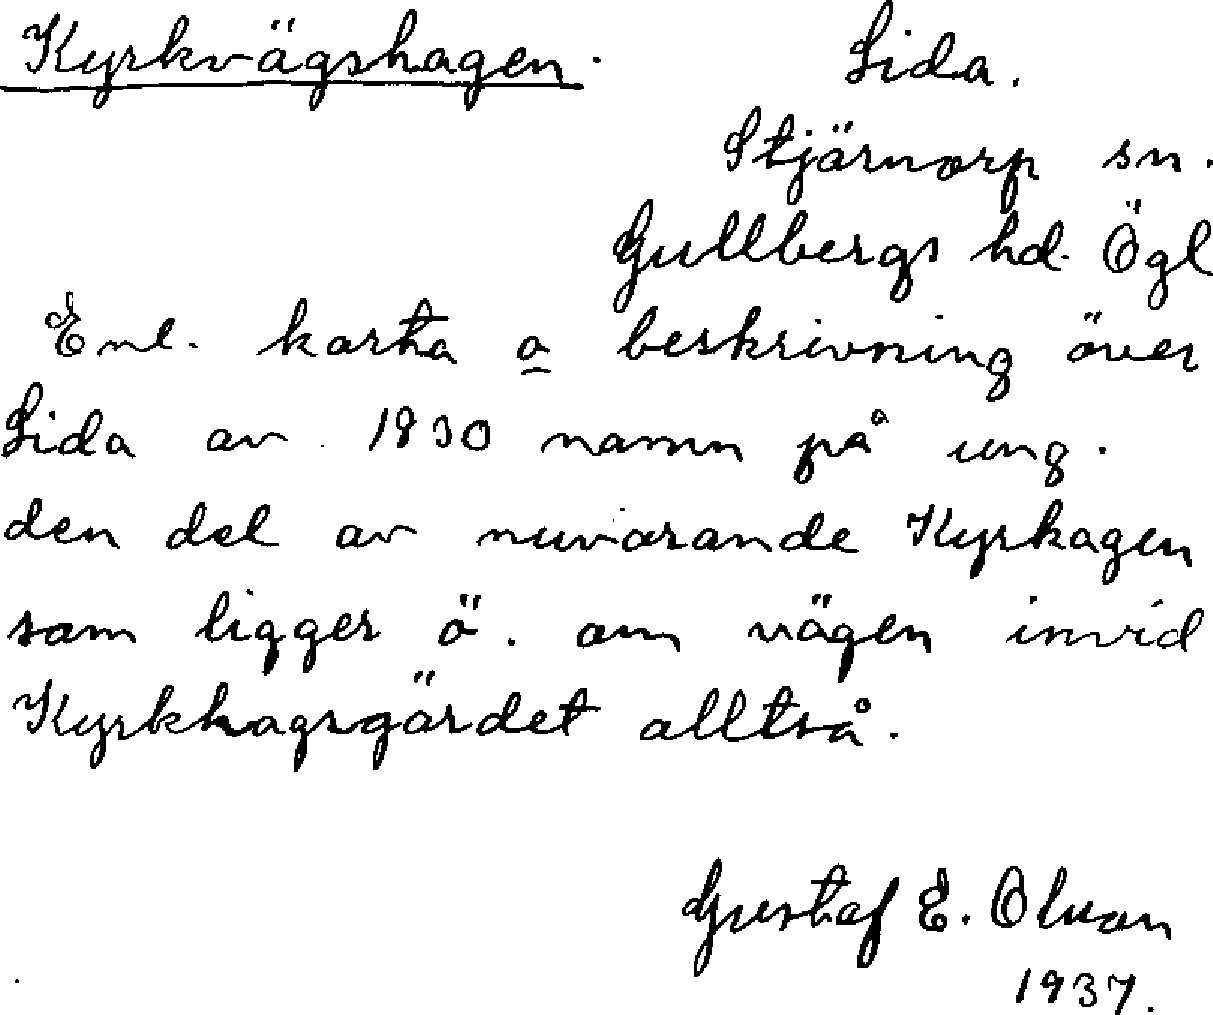 Kyrkvägshagen. Lida.
Stjärnorp sn.
Gullbergs hd. Ögl
Enl. karta o beskrivning över
Lida av 1830 namn på ung.
den del av nuvarande Kyrkagen
som ligger ö. om vägen invid
Kyrkhagsgärdet alltså.
Gustaf E. Olsson
1937.